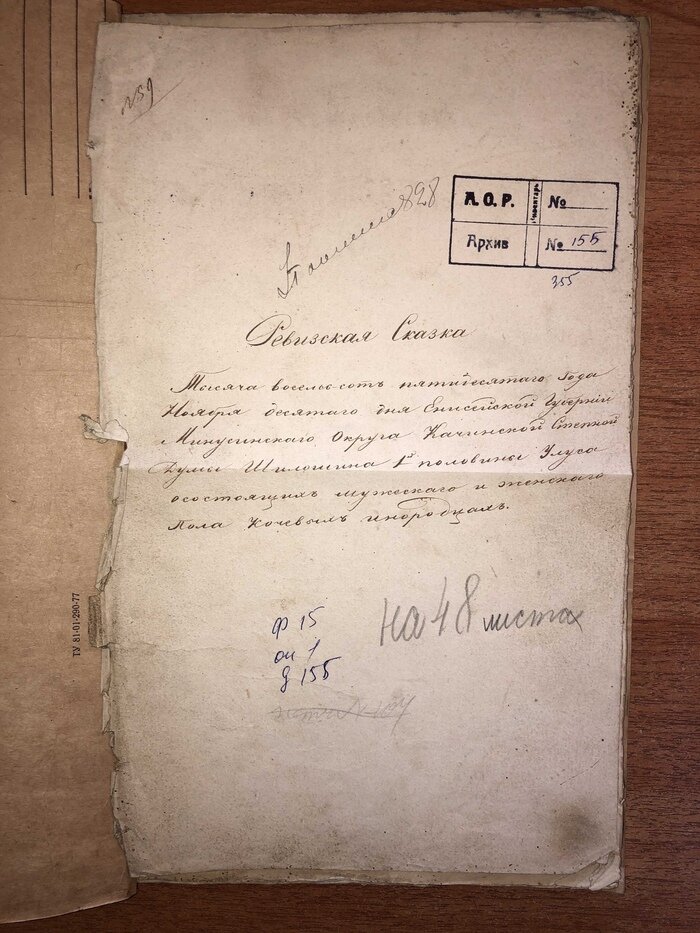 259
828
А.О.Р.
Инвентарь
№
Архив
№ 155
355
Ревизская Сказка
Тысяча восемь сотъ пятидесятаго Года
Ноября десятаго дня Енисейской Губерніи
Минусинскаго Округа Качинской Степной
Думы Шилошина 1й половины Улуса
о состоящихъ мужескаго и женскаго
Пола Кочевыхъ инородцахъ.
ф 15
оп 1
д 155
на 48 листах
ТУ 81-01-290-77